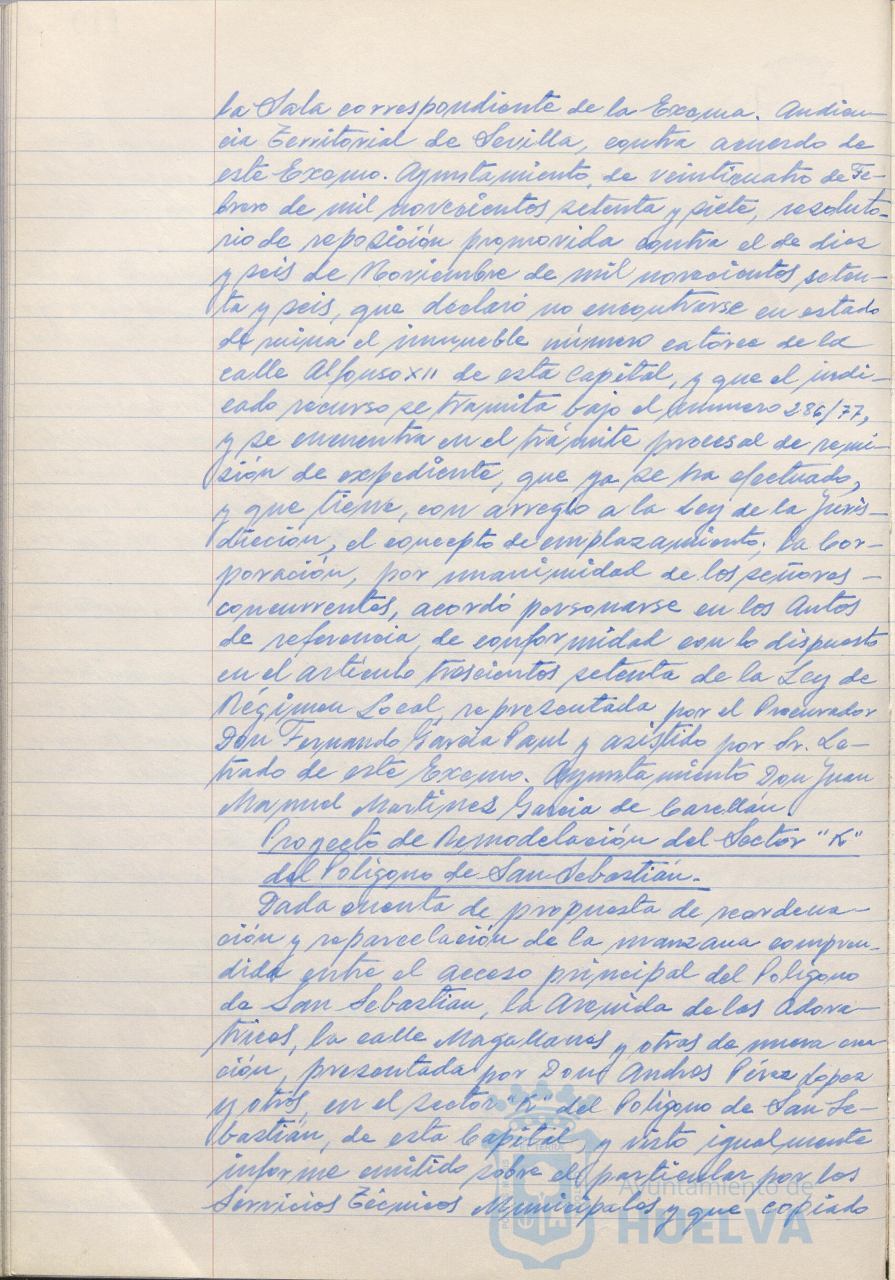 la Sala correspondiente de la Excma. Audien-
cia Territorial de Sevilla, contra acuerdo de
este Excmo. Ayuntamiento, de veinticuatro de Fe-
brero de mil novecientos setenta y siete, resoluto-
rio de reposición promovida contra el de diez
y seis de Noviembre de mil novecientos seten-
ta y seis, que declaró no encontrarse en estado
de ruina el inmueble número catorce de la
calle Alfonso XII de esta Capital, y que el indi-
cado recurso se tramita bajo el número 286/77,
y se encuentra en el trámite procesal de remi-
sión de expediente, que ya se ha efectuado,
y que tiene, con arreglo a la Ley de la Juris-
dicción, el concepto de emplazamiento; la Cor-
poración, por unanimidad de los señores -
concurrentes, acordó personarse en los Autos
de referencia, de conformidad con lo dispuesto
en el artículo trescientos setenta de la Ley de
Régimen Local, representada por el Procurador
Don Fernando García Paul y asistido por Sr. Le-
trado de este Excmo. Ayuntamiento Don Juan
Manuel Martínez García de
Proyecto de Remodelación del Sector "K"
del Polígono de San Sebastián.-
Dada cuenta de propuesta de reordena-
ción y reparcelación de la manzana compren-
dida entre el acceso principal del Polígono
de San Sebastian, la Avenida de las Adora-
trices, la calle Magallanes y otras de nueva crea-
ción, presentada por Don Andres Pérez López
y otros, en el sector "K" del Polígono de San Se-
bastián, de esta Capital y visto igualmente
informe emitido sobre el particular por los
Servicios Técnicos Municipales y que copiado
Ayuntamiento de
HUELVA